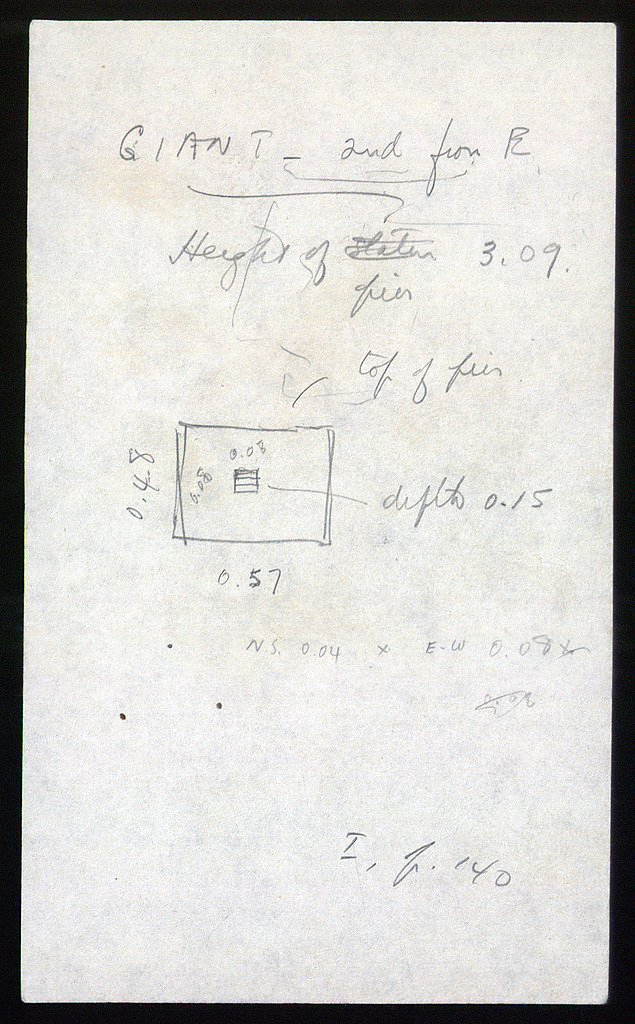 GIANT - 2nd from E
Height of statue 3.09.
pier
top of pier
0.08
0.48
0.08
depth 0.15
0.57
N.S. 0.04 x E-W 0.08 x
I, p. 140